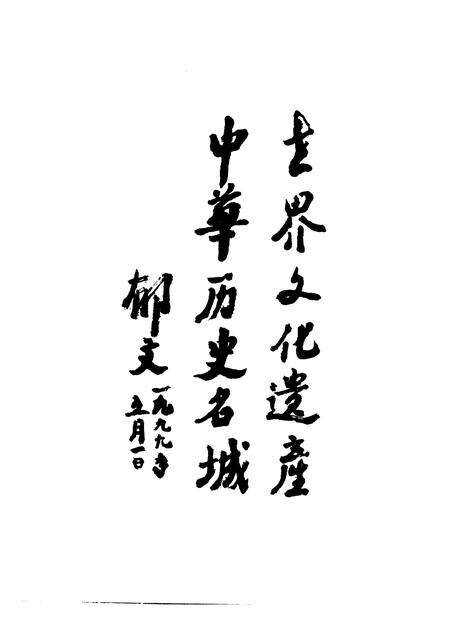 世界文化遗產
中华历史名城
郁文
一九九九年
五月一日